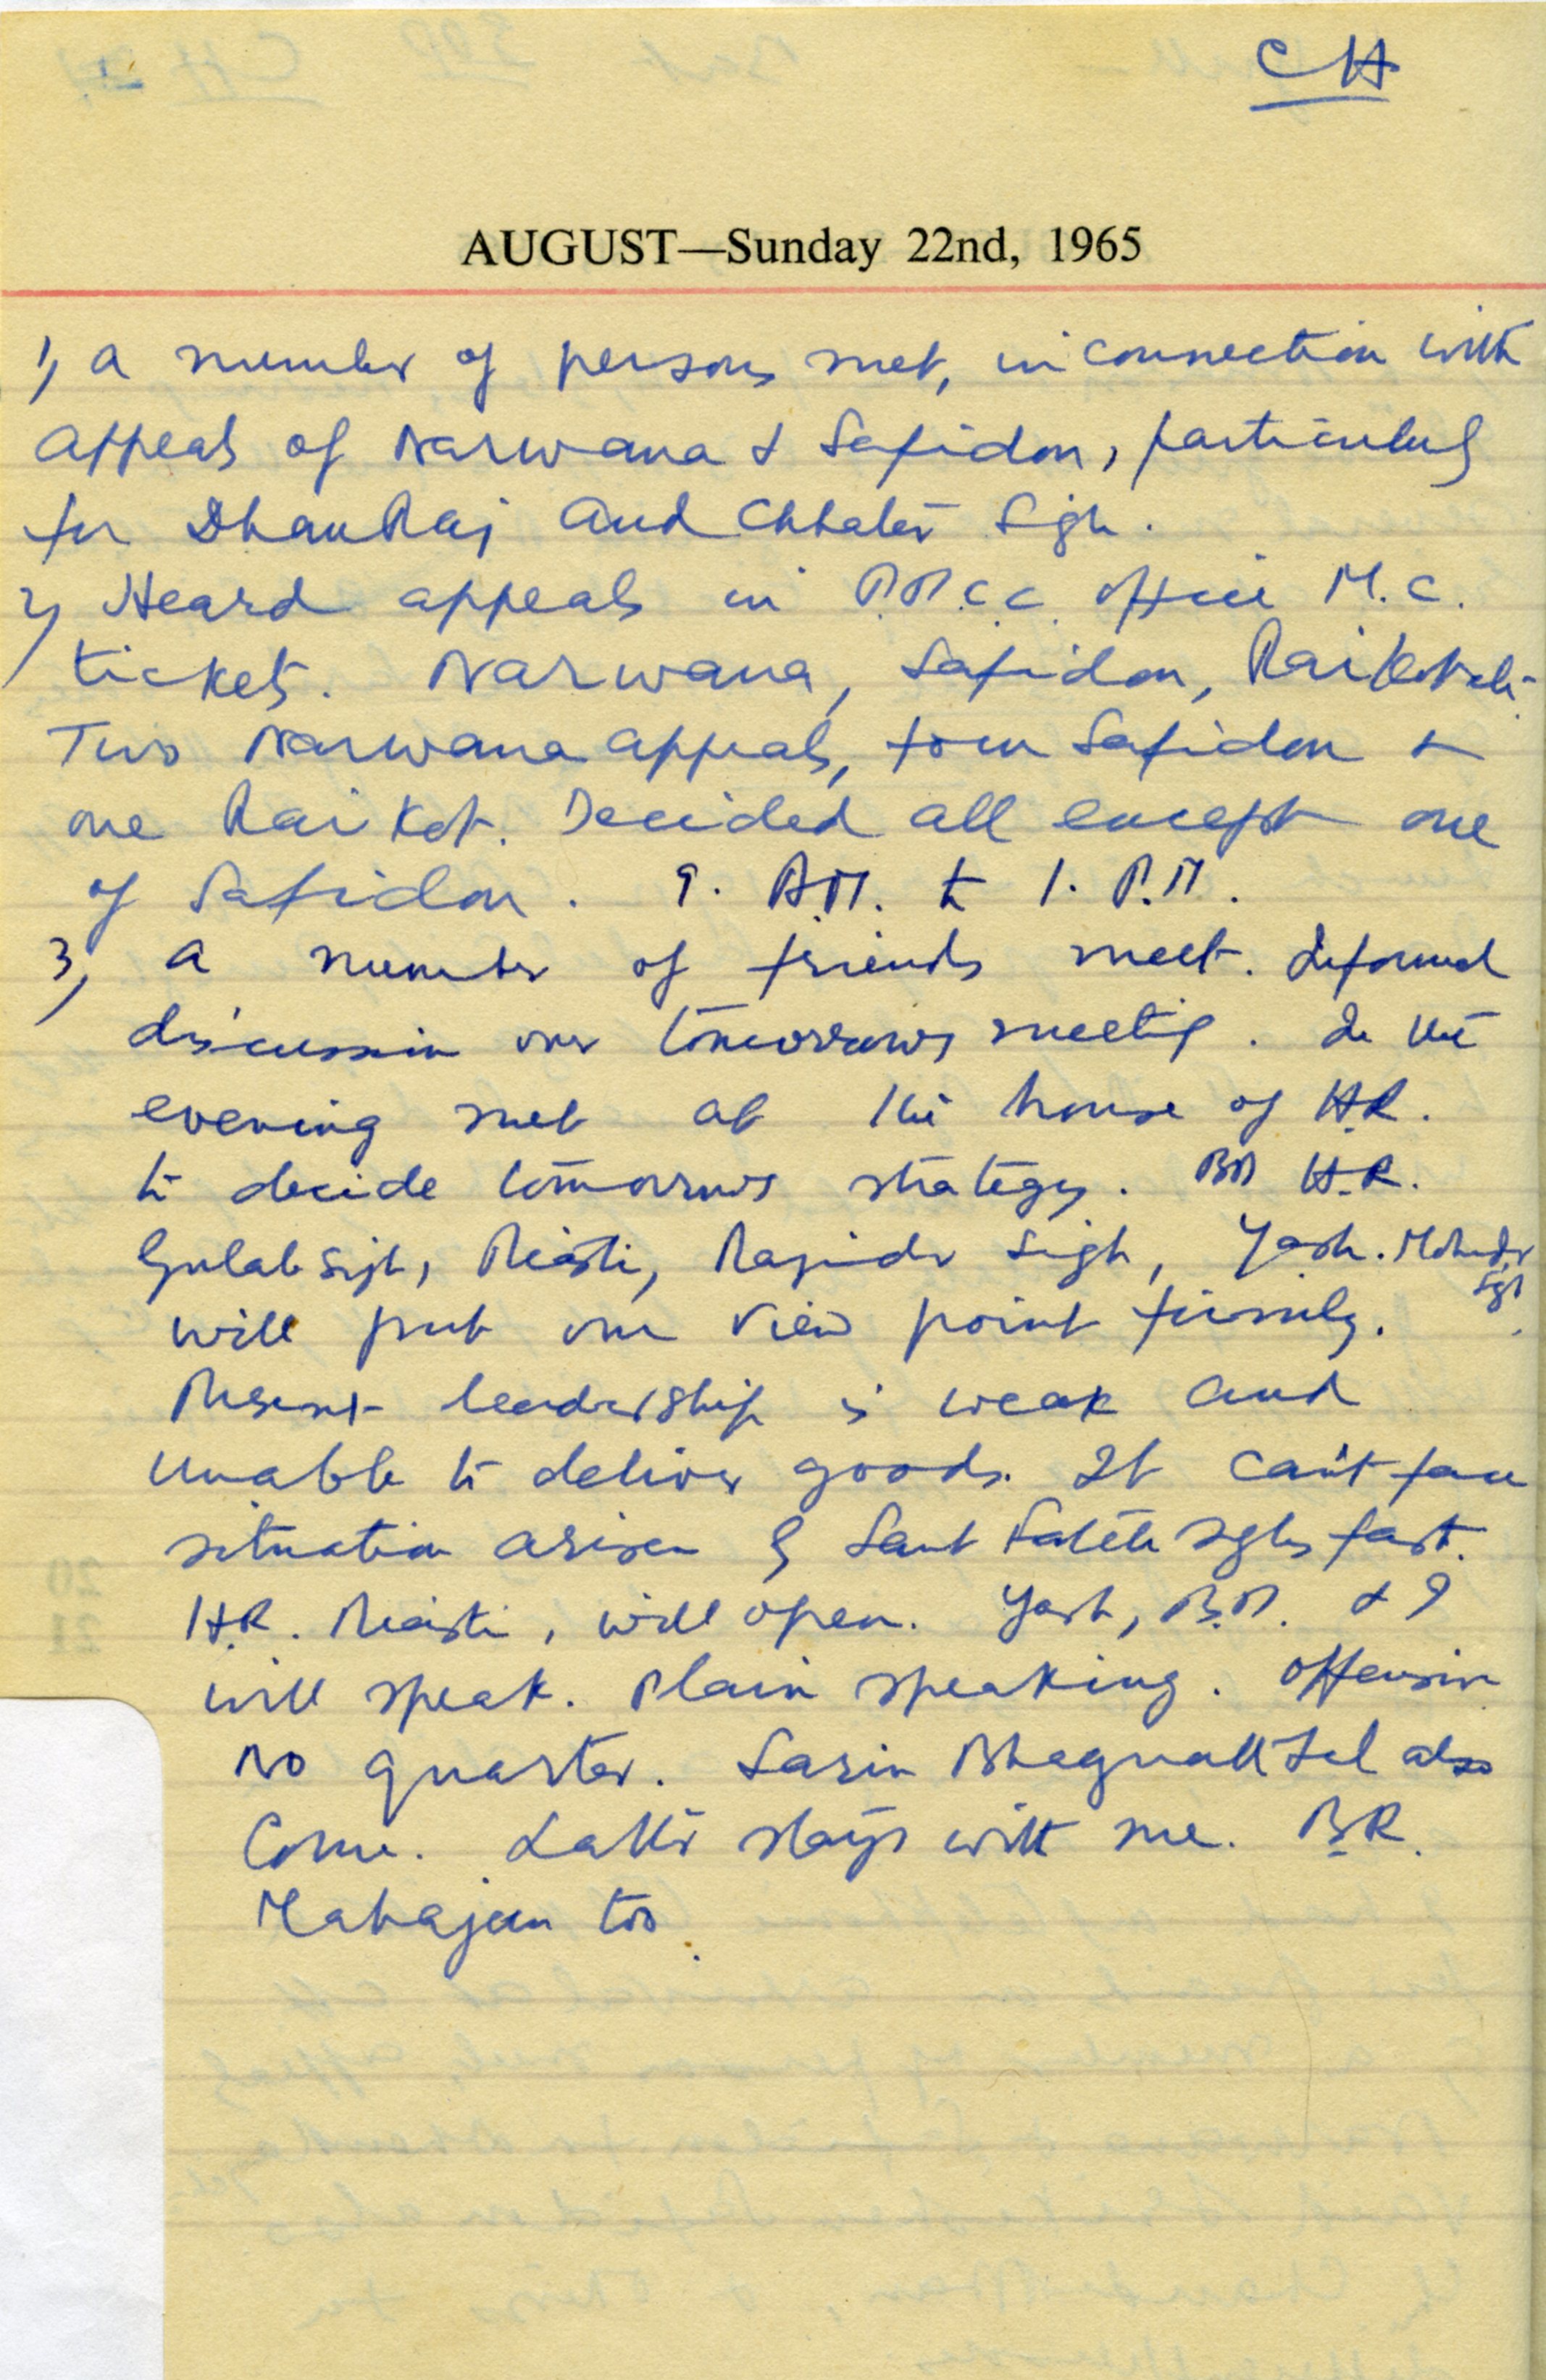 CH
AUGUST—Sunday 22nd, 1965
1, A number of persons met, in connection with
appeals of Narwana & Safidon, particularly
for DhanRaj and Chhater Sigh.
2, Heard appeals in P.P.C.C. office M.C.
tickets. Narwana, Safidon, Raikot
Two Narwana appeals, four Safidon &
one Raikot. Decided all except one
of Safidon. 9. A.M. to 1. P.M.
3, A number of friends meet. Informal
discussion over tomorrows meetig. In the
evening met at the house of H.R.
to decide tomorrows strategy. H.R.
Gulab Sigh, Rajinder Sigh, Yash. Mohinder
Sgh
will put our view point firmly.
Present leadership is weak and
unable to deliver goods. It can't face
situation arisen by Sant Fateh Sghs fast.
H.R. will open. Yash, & I
will speak. Plain speaking. Offensive
No quarter. Sarin Lal also
Come. stays with me. B.R.
Mahajan too.